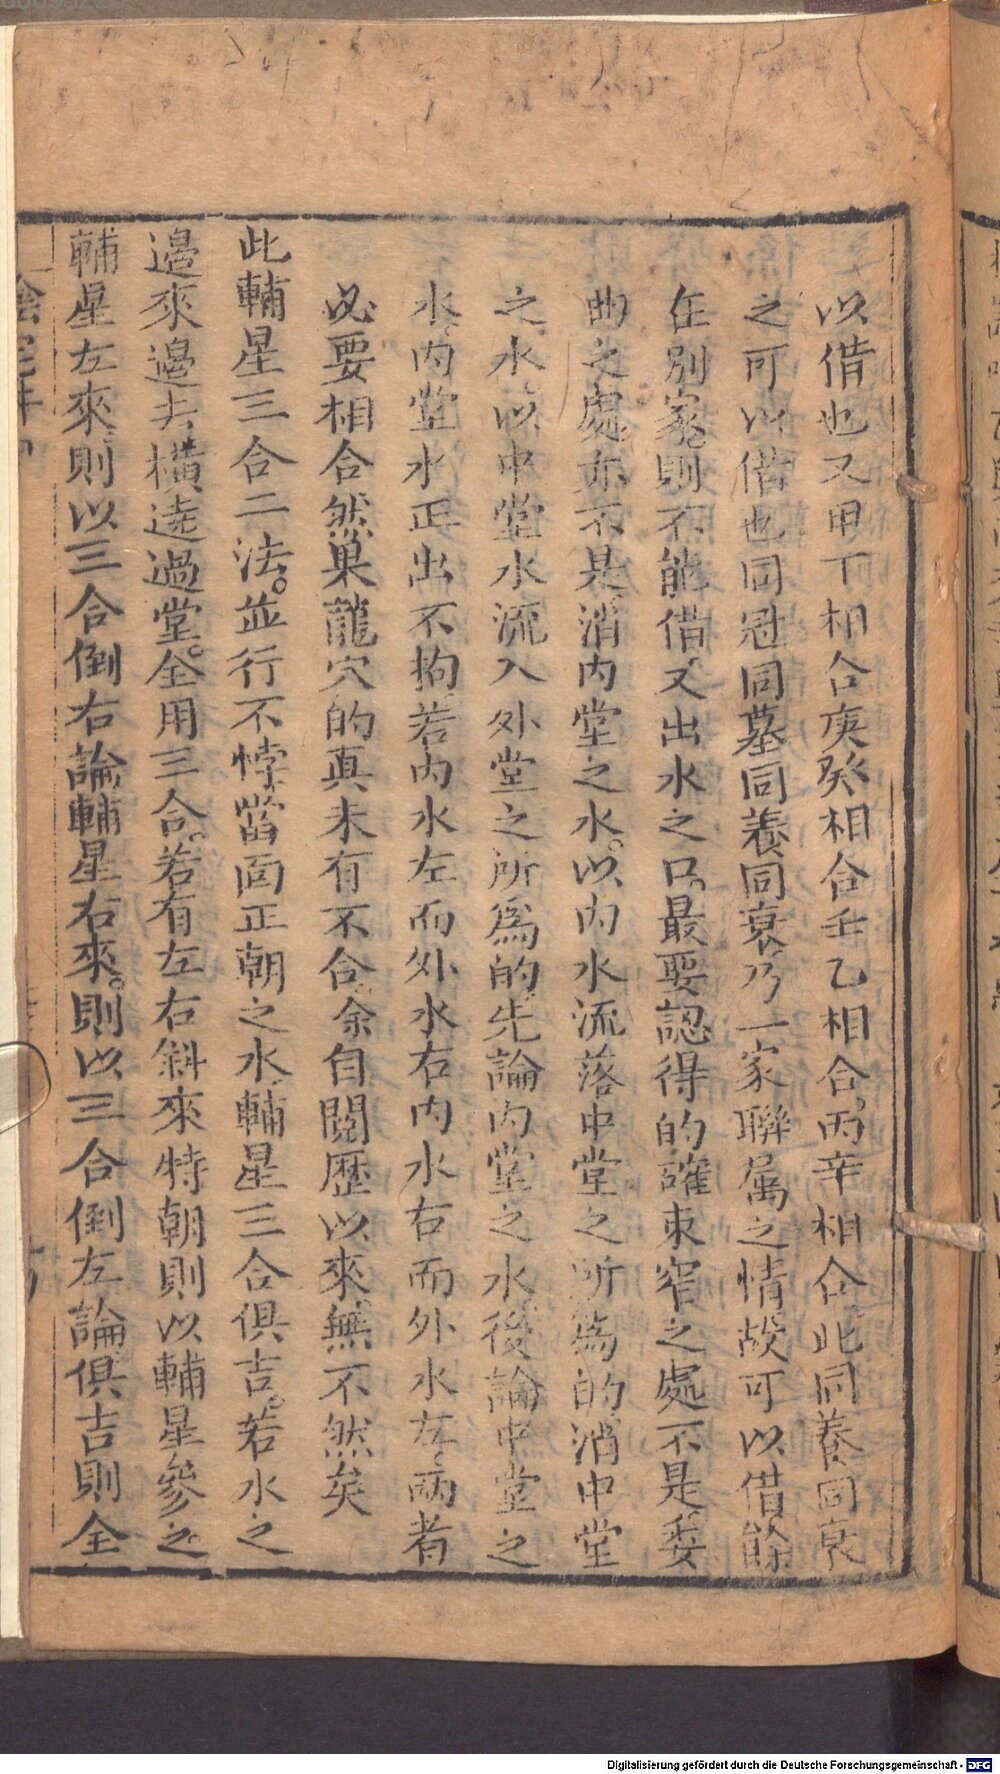 以借也又甲丁相合庚癸相合壬乙相合丙辛相合此同養同衰
之可以借也同冠同墓同養同衰乃一家聯属之情故可以借餘
在別家則不能借又出水之口最要認得的確束窄之處不是委
曲之處亦不是消内堂之水以内水流落中堂之所爲的消中堂
之水以中堂水流入外堂之所爲的先論内堂之水後論中堂之
水内堂水正出不拘若内水左而外水右内水右而外水左兩者
必要相合然巢龍穴的真未有不合余自閱歷以來無不然矣
此輔星三合二法並行不悖當面正朝之水輔星三合俱吉若水之
邉來邉去横遶過堂全用三合若有左右斜來特朝則以輔星參之
輔星左來則以三合倒右論輔星右來則以三合倒左論俱吉則全
Digitalisierung gefördert durch die Deutsche Forschungsgemeinschaft - DFG